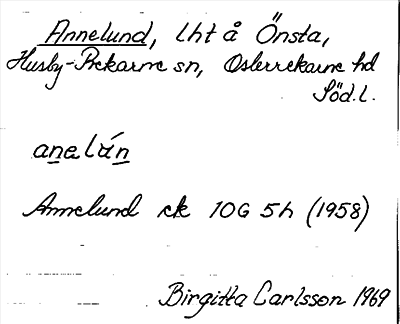 Annelund, lht å Önsta,
Husby-Rekarne sn, Österrekarne hd
Söd.l.
anelán
Annelund ek 10G 5h (1958)
Birgitta Carlsson 1969